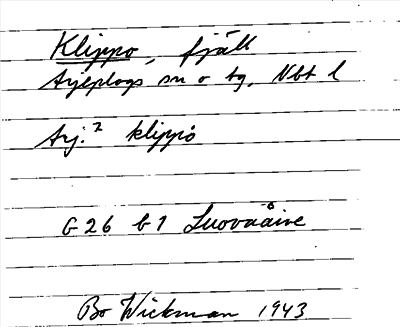 Klippo, fjäll
Arjeplogs sn o tg, Nbt l
Arj.² klippo
G 26 b 1 Luovaåive
Bo Wickman 1943